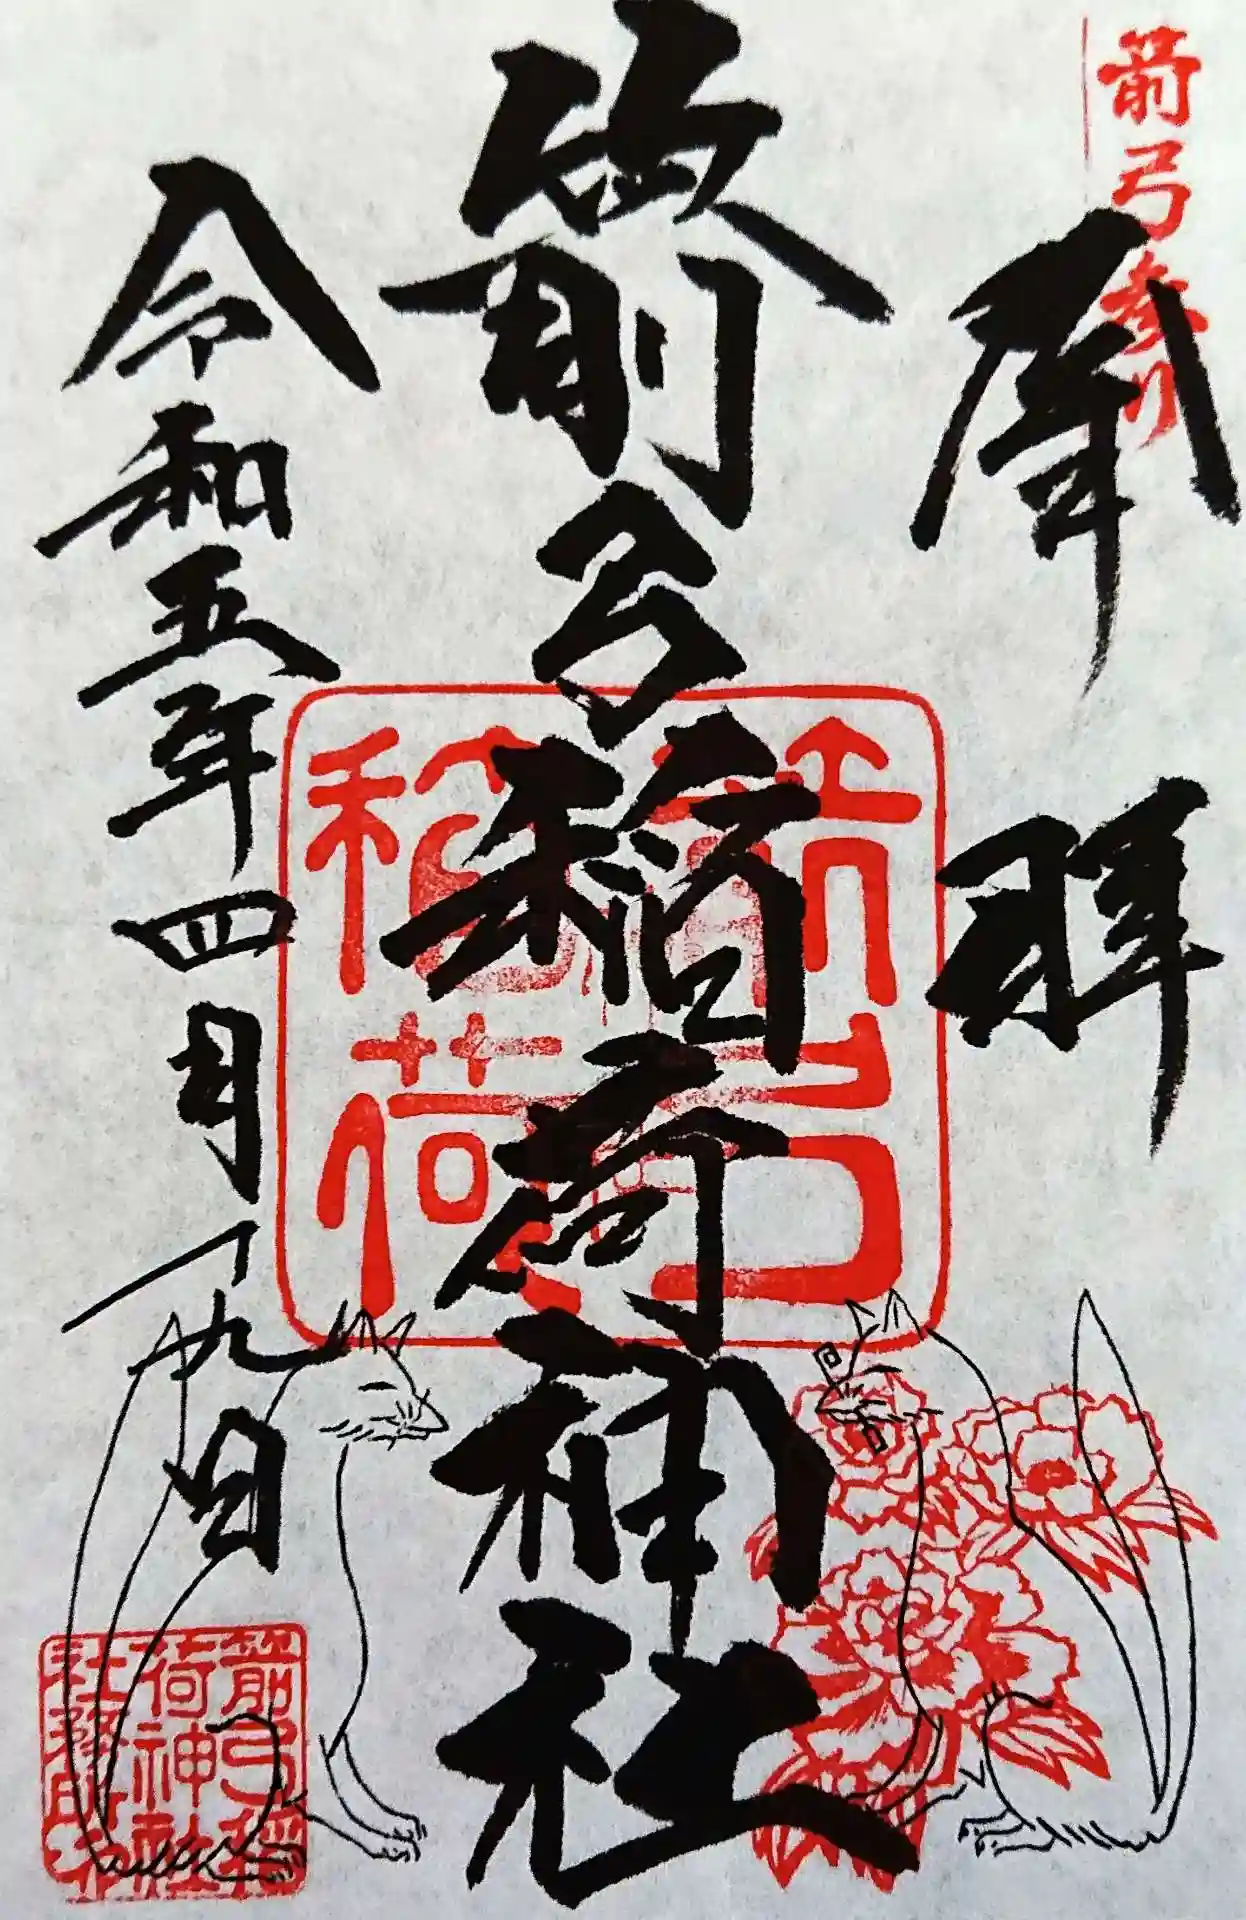 箭弓参り
奉拝
箭弓稲荷神社
箭弓
稲荷
令和五年四月一九日
箭弓稲
荷神社
社務所